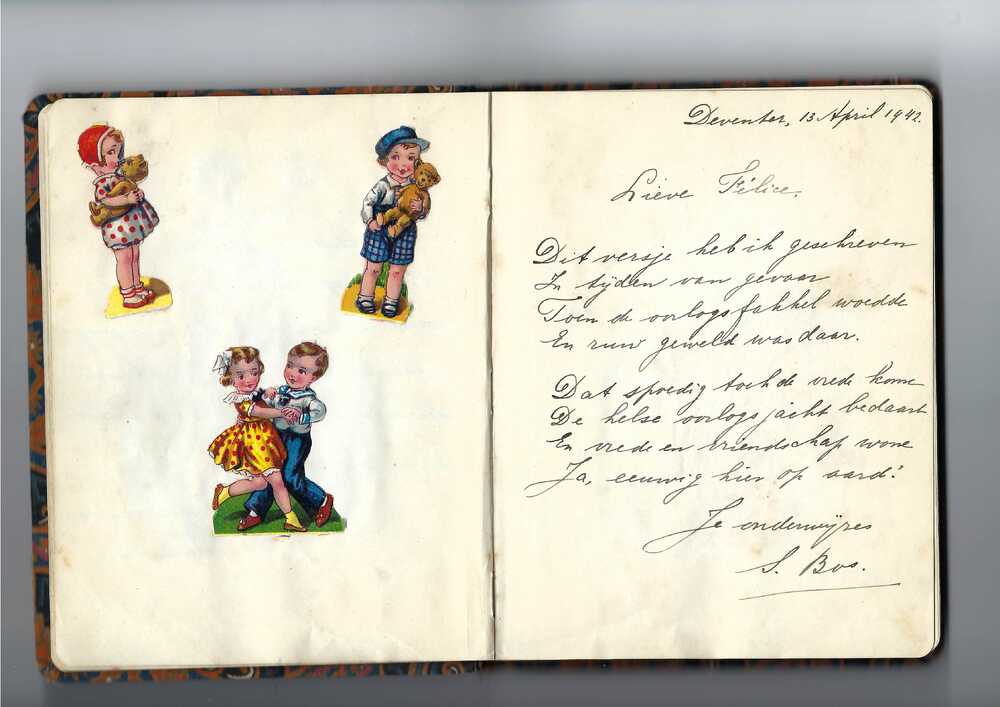 Deventer, 13 April 1942.
Lieve Félice.
Dit versje heb ik geschreven
In tijden van gevaar
Toen de oorlogsfakkel woedde
En ruw geweld was daar.
Dat spoedig toch de vrede kome
De helse oorlogsjacht bedaart
En vrede en vriendschap wone
Ja, eeuwig hier op aard!
Je onderwijzes
S. Bos.